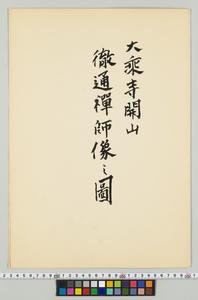 大乗寺開山
徹通禪師像之圖